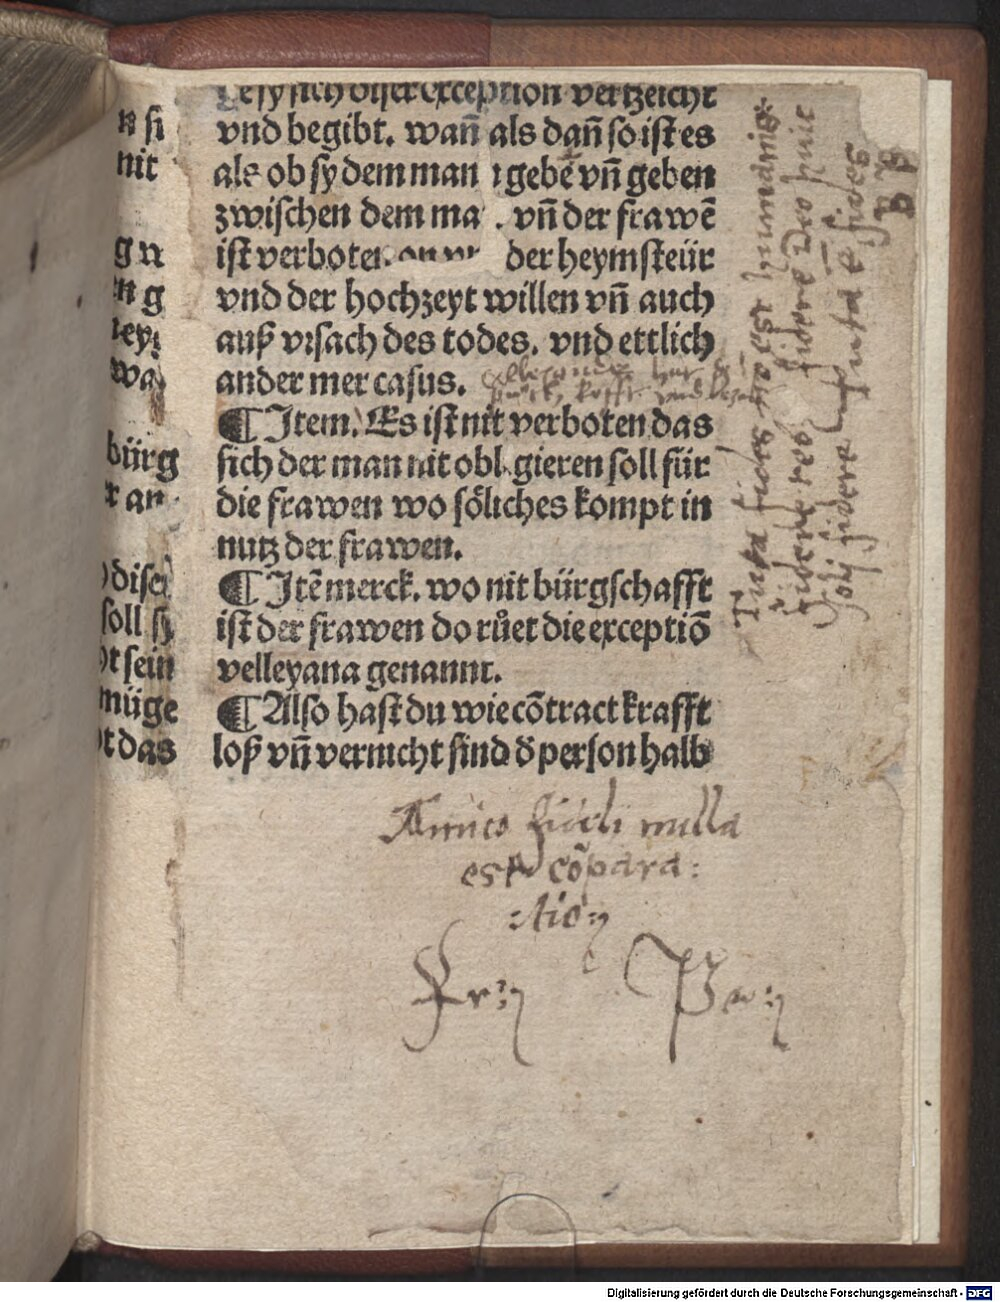 n si
nit
g n
en g
ney
wa
bürg
r an
disei
soll sy
t sein
müge
t das
sy sich diser exception vertzeicht
vnd begibt. wañ als dañ so ist es
als ob sy dem man gebē vñ geben
zwischen dem ma . vñ der frawē
ist verboten on der heymsteür
vnd der hochzeyt willen vñ auch
auß vrsach des todes. vnd ettlich
ander mer casus.
¶ Item. Es ist nit verboten das
sich der man nit obligieren soll für
die frawen wo söliches kompt in
nutz der frawen.
¶ Itē merck. wo nit bürgschafft
ist der frawen do růet die exceptiō
velleyana genannt.
¶ Also hast du wie cōtract krafft
loß vñ vernicht sind d̄ person halb
Tuta fides est humanis
fidere rebus fidere Deo
soli fidere tuta fides
Amico fideli nulla
est cōpara:
:tio
Digitalisierung gefördert durch die Deutsche Forschungsgemeinschaft - DFG